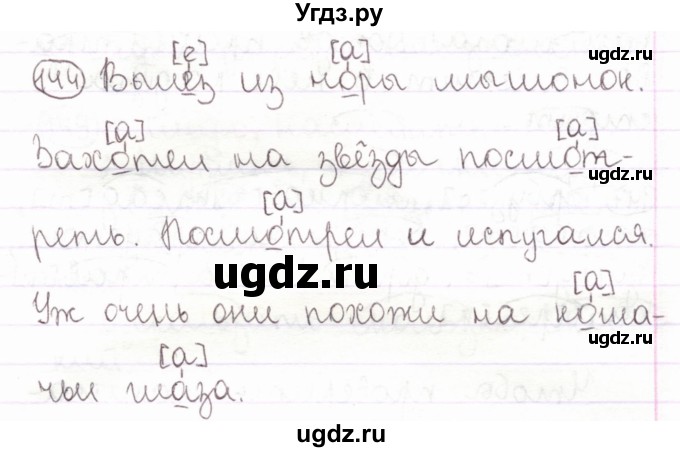 Угдз.ру
[е] [а]
144 Вылез из норы мышонок.
[а] [а]
Захотел на звёзды посмот-
[а]
реть. Посмотрел и испугался.
ugdz.ru
[а]
Уж очень они похожи на коша-
[а]
чьи глаза.
ugdz.ru
ugdz.ru
ugdz.ru
ugdz.ru